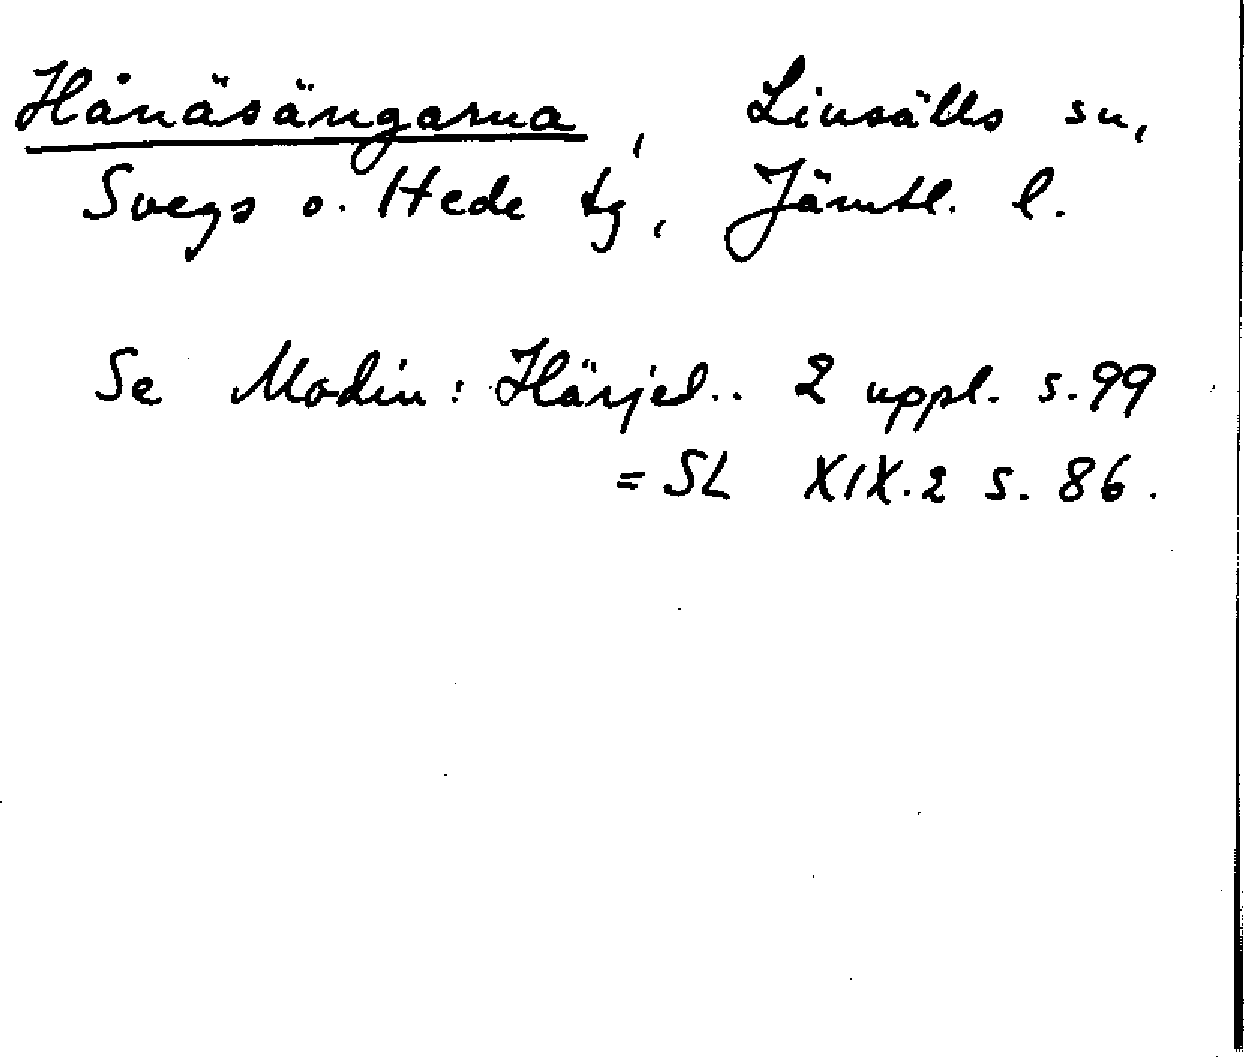 Hånäsängarna, Linsälls sn,
Svegs o. Hede tg, Jämtl. l.
Se Modin: Härjed.. 2 uppl. s. 99
= SL XIX.2 s. 86.